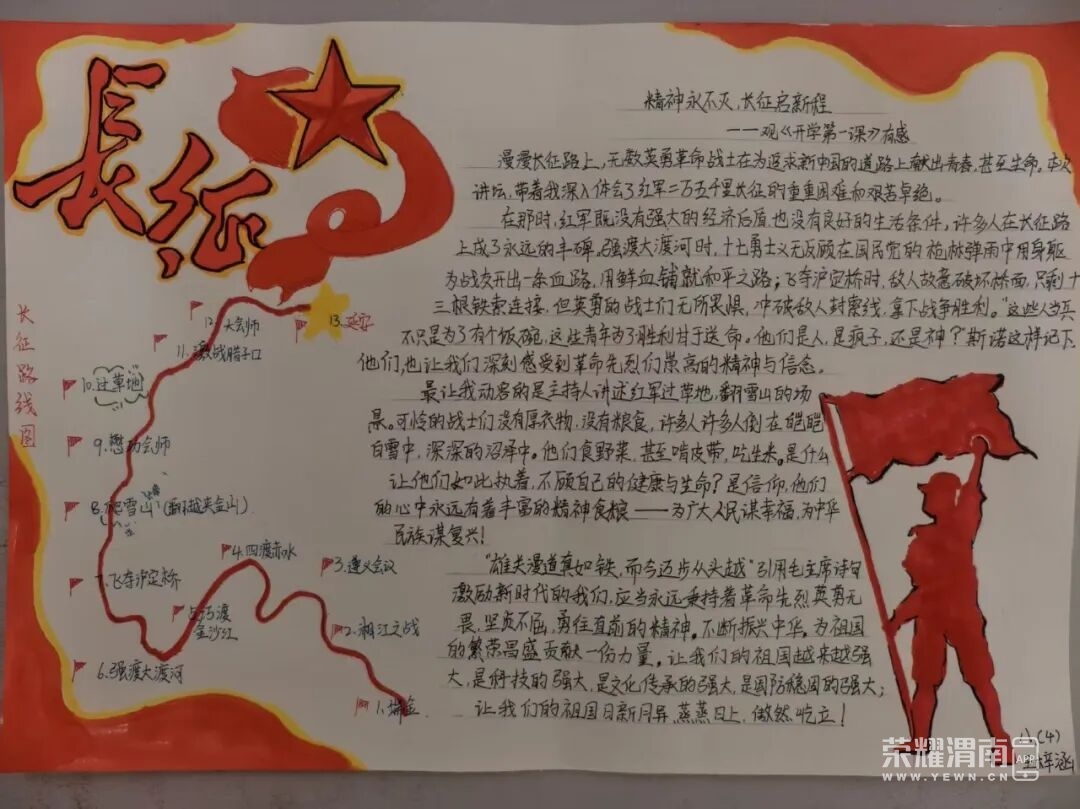 长征
精神永不灭,长征启新程
——观《开学第一课》有感
漫漫长征路上,无数英勇革命战士在为追求新中国的道路上献出青春,甚至生命。本次
讲坛,带着我深入体会了红军二万五千里长征的重重困难和艰苦卓绝。
在那时,红军既没有强大的经济后盾也没有良好的生活条件,许多人在长征路
上成了永远的丰碑。强渡大渡河时,十七勇士义无反顾在国民党的枪林弹雨中用身躯
为战友开出一条血路,用鲜血铺就和平之路;飞夺泸定桥时,敌人故意破坏桥面,只剩十
三根铁索连接,但英勇的战士们无所畏惧,冲破敌人封索线,拿下战争胜利。“这些人当兵
不只是为了有个饭碗,这些青年为了胜利甘于送命。他们是人,是疯子,还是神?斯诺这样记下
他们,也让我们深刻感受到革命先烈们崇高的精神与信念。
最让我动容的是主持人讲述红军过草地,翻雪山的场
景。可怜的战士们没有厚衣物,没有粮食,许多人许多人倒在皑皑
白雪中,深深的沼泽中。他们食野菜,甚至啃皮带,吃生米。是什么
让他们如此执着,不顾自己的健康与生命?是信仰,他们
的心中永远有着丰富的精神食粮——为广大人民谋幸福,为中华
民族谋复兴!
“雄关漫道真如铁,而今迈步从头越”引用毛主席诗句
激励新时代的我们,应当永远秉持着革命先烈英勇无
畏、坚贞不屈,勇往直前的精神。不断振兴中华。为祖国
的繁荣昌盛贡献一份力量。让我们的祖国越来越强
大,是科技的强大,是文化传承的强大,是国防稳固的强大;
让我们的祖国日新月异,蒸蒸日上,傲然屹立!
长征路线图
13.延安
12.大会师
11.激战腊子口
10.过草地
9.懋功会师
8.爬雪山(翻越夹金山)
7.飞夺泸定桥
6.强渡大渡河
5.巧渡
金沙江
4.四渡赤水
3.遵义会议
2.湘江之战
1.瑞金
(4)
荣耀渭南
APP
WWW.YEWN.CN